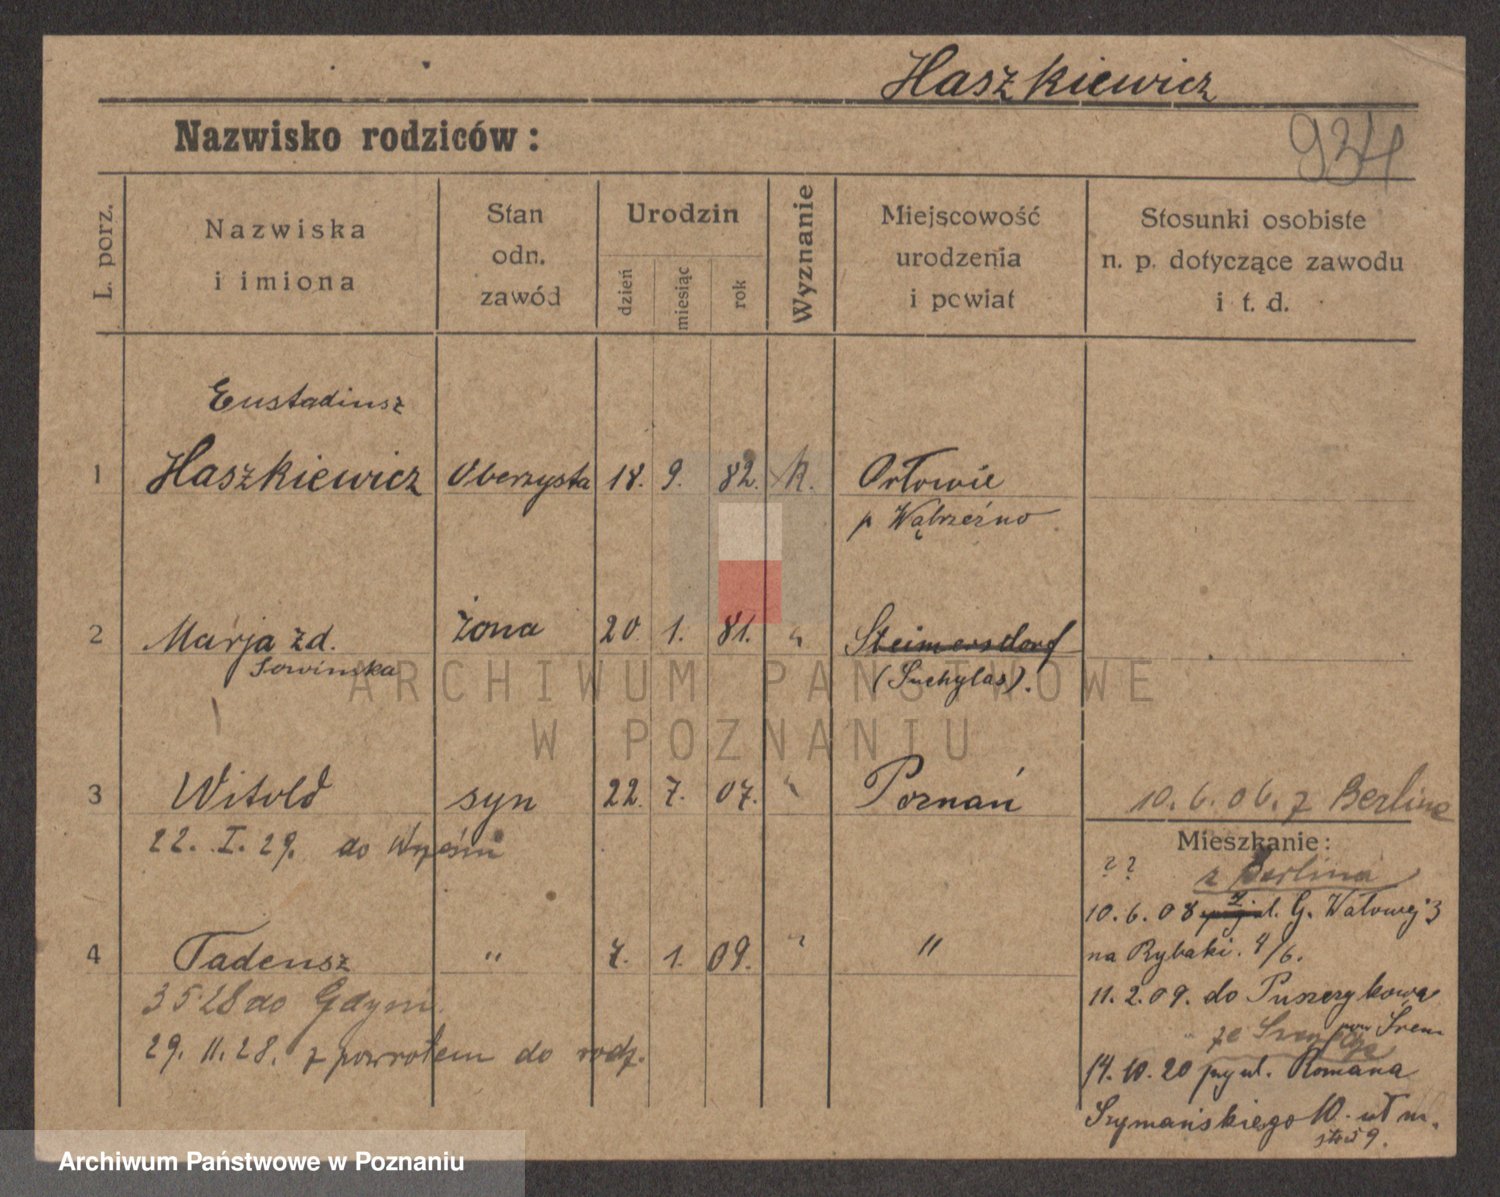 Haszkiewicz
934
Nazwisko rodziców:
L. porz.
Nazwiska
i imiona
Stan
odn.
zawód
Urodzin
dzień
miesiąc
rok
Wyznanie
Miejscowość
urodzenia
i powiat
Stosunki osobiste
n. p. dotyczące zawodu
i t. d.
Eustadiusz
1 Haszkiewicz Oberzysta 18. 9. 82. k. Orłowie
p Wąbrzeźno
2 Marja zd. żona 20 1. 81. " Steimersdorf
Sowinska (Suchylas).
3 Witold syn 22. 7. 07. " Poznań
10. 6. 06. z Berlina
22. I. 29. do Wrześni
Mieszkanie:
? ?
z Berlina
10. 6. 08 ul. G. Wałowej 3
4 Tadeusz " 7. 1. 09. " "
na Rybaki. 4/6.
3 5 28 do Gdyni
11. 2. 09. do Puszczykowa
pow Srem
29. 11. 28. z powrotem do rodz.
14. 10. 20 przy ul. Romana
Szymańskiego 10. u m.
ARCHIWUM PAŃSTWOWE
W POZNANIU
Archiwum Państwowe w Poznaniu